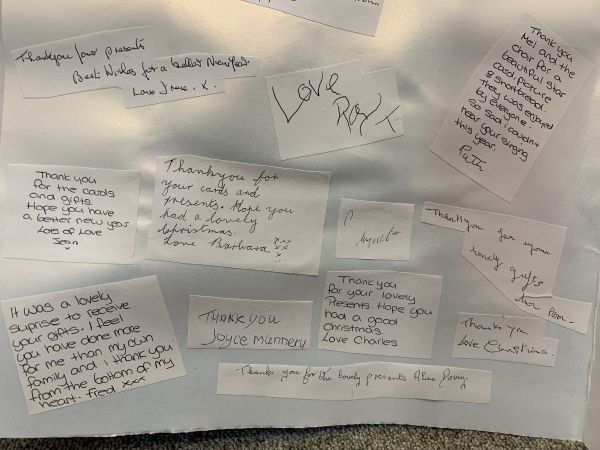 Thankyou for presents
Best Wishes for a better New Year.
Love Irene. x.
LOVE
ROY
Thank you
Mel and the
choir for a
beautiful star
card, picture
& shortbread.
They was enjoyed
by everyone.
So sad i couldnt
hear your singing
this year.
Ruth
Thank you
for the cards
and gifts
Hope you have
a better new year
Lots of Love
Jean
Thankyou for
your cards and
presents. Hope you
had a lovely
Christmas.
Love Barbara xxx
Thankyou for your
lovely gifts
It was a lovely
suprise to receive
your gifts. I feel
you have done more
for me than my own
family and i thank you
from the bottom of my
heart. Fred xxx
THANK YOU
JOYCE
Thank you
for your lovely
Presents. Hope you
had a good
christmas
Love Charles
Thank ya
Love Christina.
Thanks you for the lovely presents